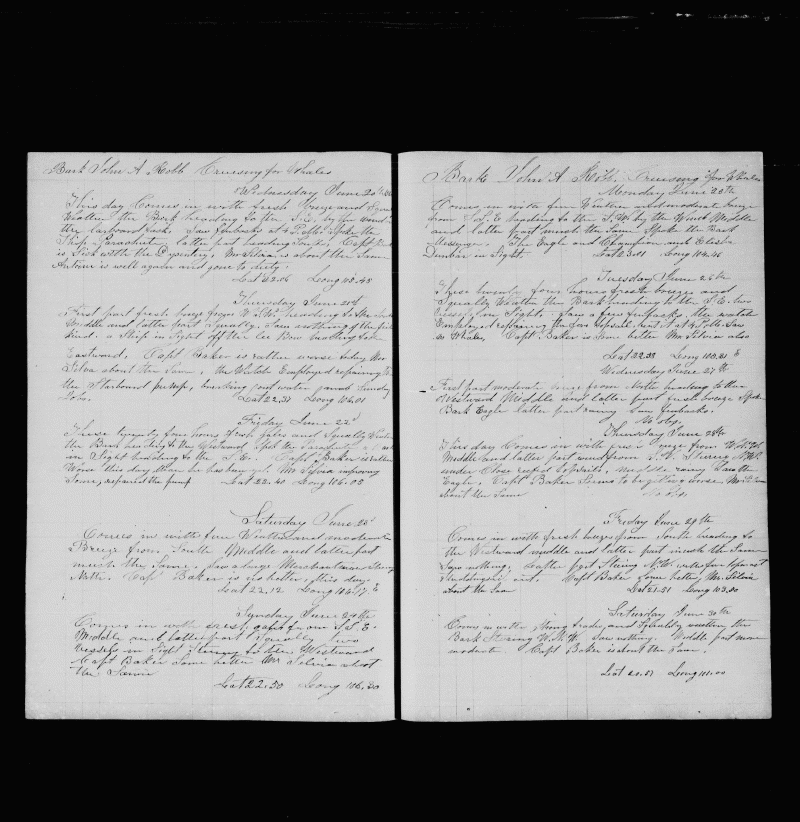 Bark John A Robb Cruising for Whales
Wednesday June 20th
This day Comes in with fresh breeze and
Weather the Bark heading to the S.E. by the wind
the larboard tack. Saw finbacks at 4 P.M. Spoke the
Ship Parachute latter part heading South, Capt
is Sick with the Dysentery, Mr Silva is about the Same
Antoine is well again and gone to duty.
Lat 22.06 Long 105.45
Thursday June 21st
First part fresh breeze from heading to the
Middle and latter part Squally. Saw nothing of the
kind. a Ship in Sight off the Lee Bow
Eastward, Capt Baker is rather worse today Mr
Silva about the Same, the Watch Employed repairing
the Starboard pump,
Lat 22.37 Long 106.01
Friday June 22d
These twenty four hours fresh gales and Squally Weather
the Bark heading to the Eastward Spoke the Parachute
in Sight heading to the S.E. Capt Baker is rather
Worse this day than he has been yet. Mr Sylva improving
Some, repaired the pump Lat 22.40 Long 106.05
Saturday June 23d
Comes in with fine Weather and moderate
Breeze from South Middle and latter part
much the Same, Saw a large Merchantman Steering
North. Capt Baker is no better, this day
Lat 22.12 Long 106.17 E
Sunday June 24th
Comes in with fresh gales from S.S.E.
Middle and latter part Squally two
Vessels in Sight Steering to the Westward
Capt Baker Some better Mr Silvia about
the Same
Lat 22.50 Long 106.30
Bark John A Robb Cruising for Whales
Monday June 25th
Comes in with fine Weather and moderate breeze
from S.S.E. heading to the S.W. by the Wind Middle
and latter part much the Same Spoke the Bark
Messenger. The Eagle and Champion and Elisha
Dunbar in Sight. Lat 23.01 Long 104.46
Tuesday June 26th
These twenty four hours fresh breeze and
Squally Weather the Bark heading to the S.E. two
Vessels in Sight. Saw a few finbacks, the watch
Employed repairing the fore topsail,
no Whales, Capt Baker is Some better Mr Silvia also
Lat 22.33 Long 103.31 E
Wednesday June 27th
First part moderate breeze from North heading to the
Westward Middle and latter part fresh breeze Spoke
Bark Eagle latter part rainy Saw finbacks.
No obs.
Thursday June 28th
This day Comes in with fresh breeze from
Middle and latter part wind from S.W. Steering
under Close reefed topsails, middle rainy Saw the
Eagle, Capt Baker Seems to be getting worse Mr Silva
about the Same No Obs
Friday June 29th
Comes in with fresh breeze from South heading to
the Westward middle and latter part much the Same
Saw nothing, Latter part Steering N.W. with fore topmast
Studdingsail out. Capt Baker Some better, Mr. Silvia
about the Same Lat 21.31 Long 102.50
Saturday June 30th
Comes in with Strong trades, and Squally weather, the
Bark Steering W.N.W. Saw nothing. Middle part more
moderate Capt Baker is about the Same.
Lat 20.51 Long 101.00